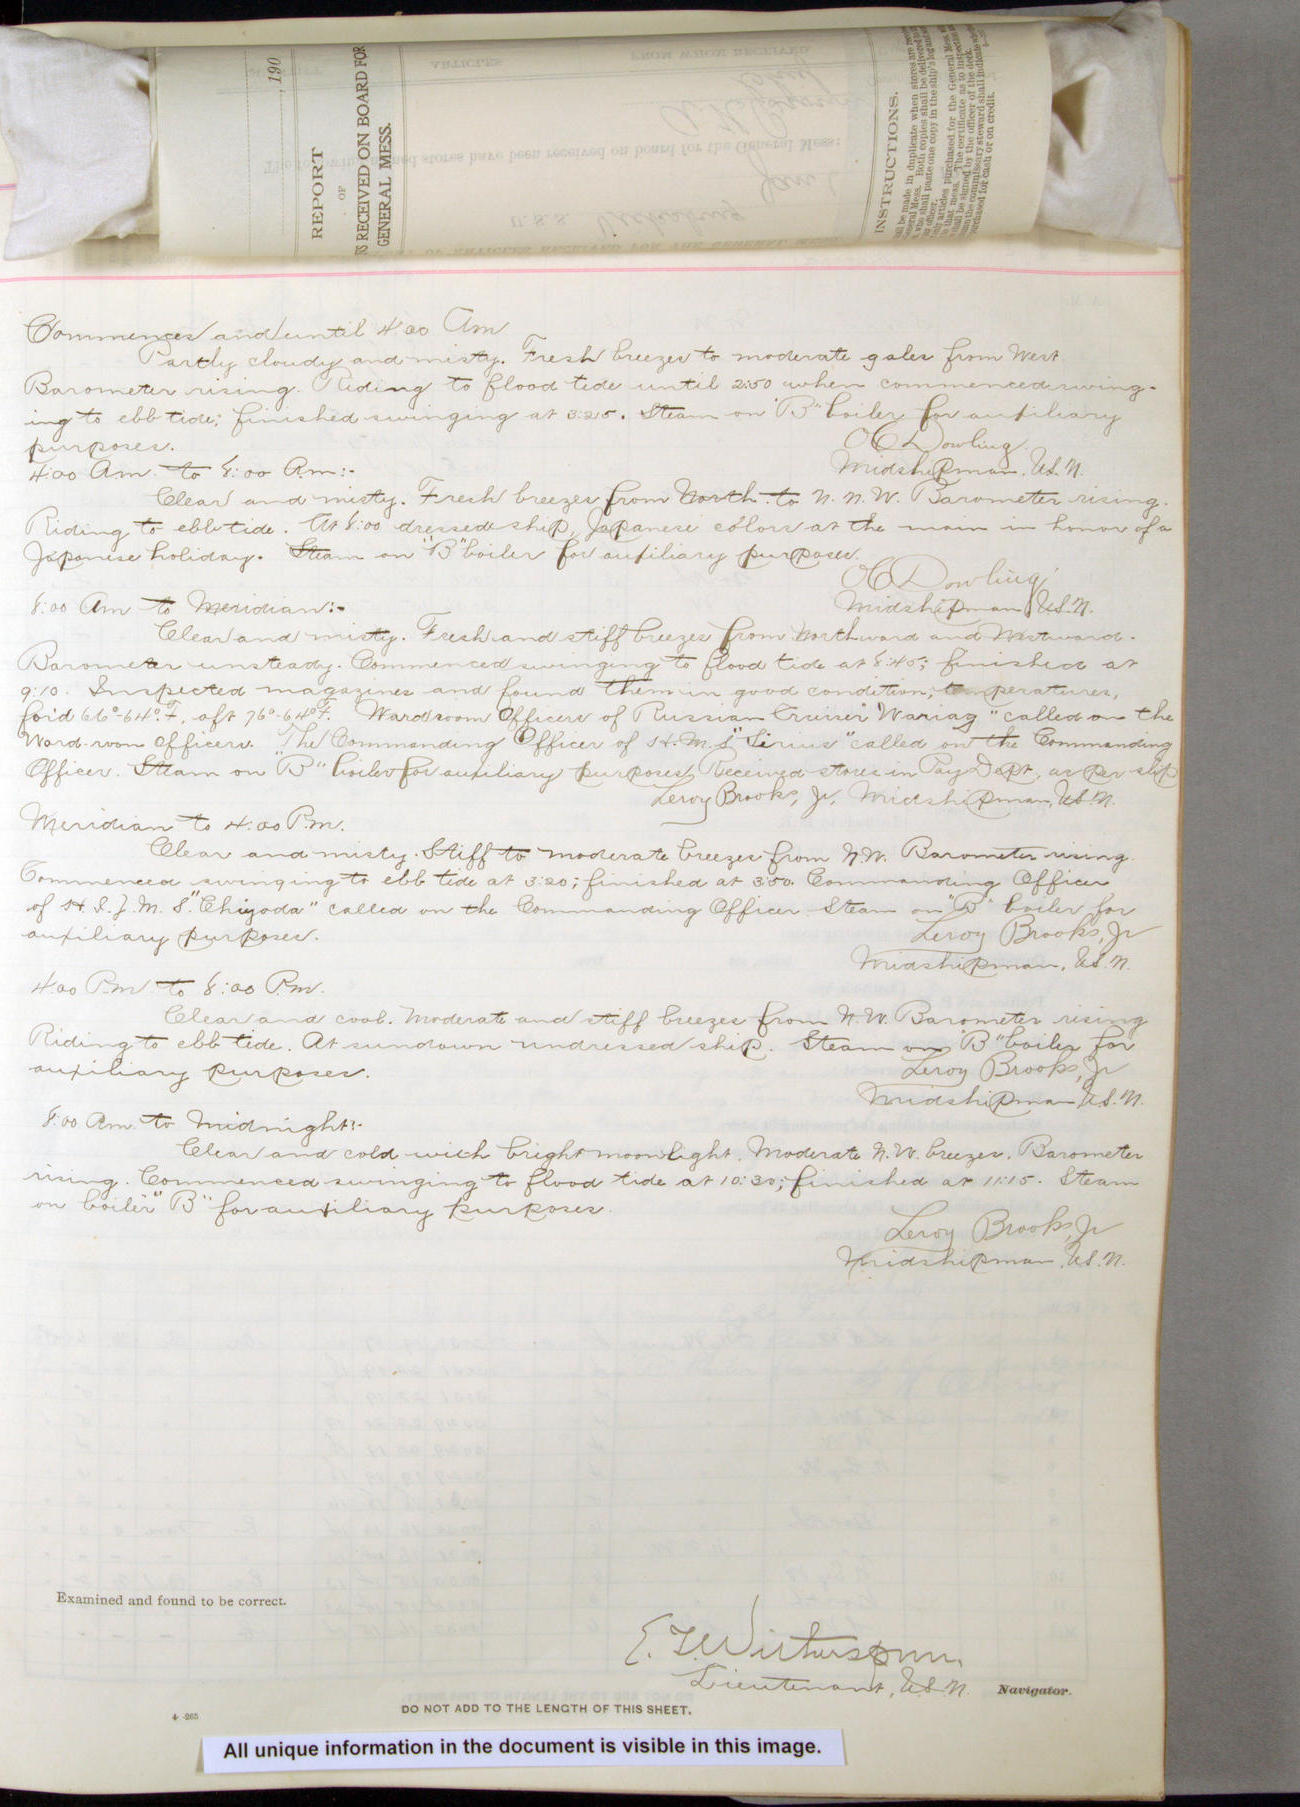 , 190
REPORT
OF
S RECEIVED ON BOARD FOR
GENERAL MESS.
ARTICLES
FROM WHOM RECEIVED
The following named stores have been received on board for the General Mess:
U.S.S. Vicksburg
Jan 1
INSTRUCTIONS.
Commences and until 4:00 Am
Partly cloudy and misty. Fresh breezes to moderate gales from West
Barometer rising. Riding to flood tide until 2:50 when commenced swing-
ing to ebb tide; finished swinging at 3:25. Steam on "B" boiler for auxiliary
purposes.
O C Dowling
Midshipman, U.S.N.
4:00 Am to 8:00 Am:-
Clear and misty. Fresh breezes from North to N.N.W. Barometer rising.
Riding to ebb tide. At 8:00 dressed ship, Japanese colors at the main in honor of a
Japanese holiday. Steam on "B" boiler for auxiliary purposes.
O C Dowling
Midshipman U.S.N.
8:00 Am to Meridian:-
Clear and misty. Fresh and stiff breezes from Northward and Westward.
Barometer unsteady. Commenced swinging to flood tide at 8:45; finished at
9:10. Inspected magazines and found them in good condition; temperatures,
for'd 66°-64° F, aft 76°-64° F. Wardroom Officers of Russian Cruiser "Wariag" called on the
Ward-room Officers. The Commanding Officer of H.M.S. "Sirius" called on the Commanding
Officer. Steam on "B" boiler for auxiliary purposes. Received stores in Pay Dept. as per slip
Leroy Brooks, Jr. Midshipman, U.S.N.
Meridian to 4:00 P.m.
Clear and misty. Stiff to moderate breezes from N.W. Barometer rising.
Commenced swinging to ebb tide at 3:20; finished at 3:50. Commanding Officer
of H.I.J.M.S. "Chiyoda" called on the Commanding Officer. Steam on "B" boiler for
auxiliary purposes.
Leroy Brooks, Jr
Midshipman, U.S.N.
4:00 P.m. to 8:00 P.m.
Clear and cool. Moderate and stiff breezes from N.W. Barometer rising
Riding to ebb tide. At sundown undressed ship. Steam on "B" boiler for
auxiliary purposes.
Leroy Brooks, Jr
Midshipman U.S.N.
8:00 Pm to Midnight:-
Clear and cold with bright moonlight. Moderate N.W. breezes. Barometer
rising. Commenced swinging to flood tide at 10:30; finished at 11:15. Steam
on boiler "B" for auxiliary purposes.
Leroy Brooks, Jr
Midshipman, U.S.N.
Examined and found to be correct.
E. T. Witherspoon,
Lieutenant, U.S.N. Navigator.
DO NOT ADD TO THE LENGTH OF THIS SHEET.
4-265
All unique information in the document is visible in this image.